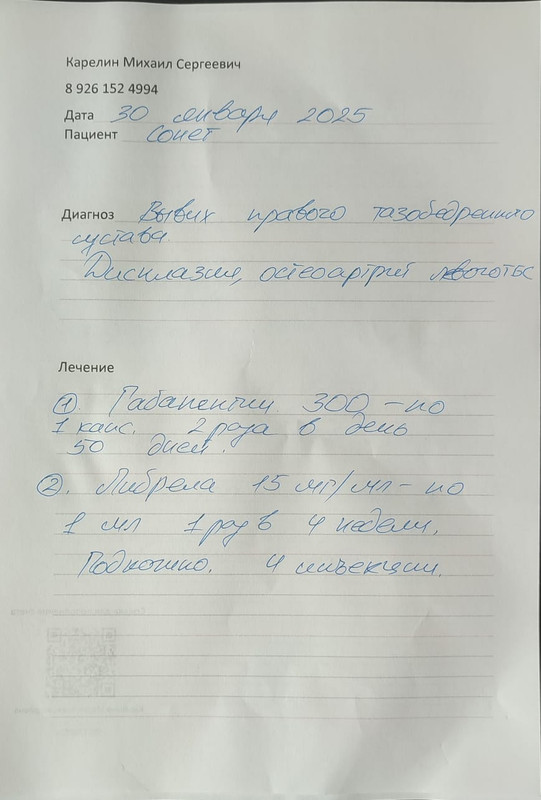 Карелин Михаил Сергеевич
8 926 152 4994
Дата 30 января 2025
Пациент Сонет
Диагноз Вывих правого тазобедренного
сустава.
Дисплазия, остеоартрит левого ТБС
Лечение
1. Габапентин 300 - по
1 капс. 2 раза в день
50 дней.
2. Либрела 15 мг/мл - по
1 мл 1 раз в 4 недели.
Подкожно. 4 инъекции.